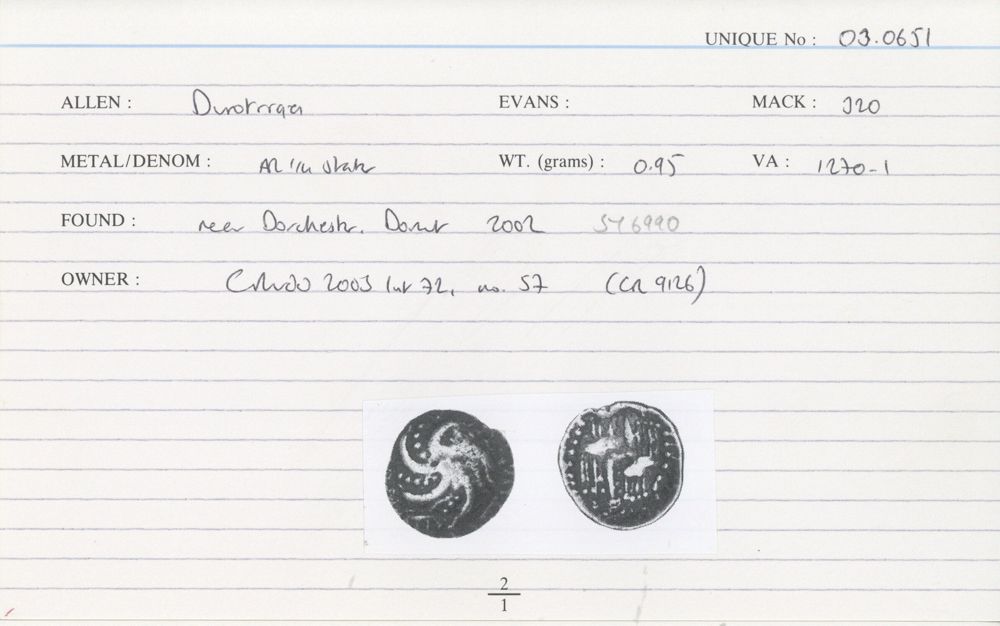 UNIQUE No : 03.0651
ALLEN : Durotriges EVANS : MACK : 320
METAL/DENOM : AR 1/4 stater WT. (grams) : 0.95 VA : 1270-1
FOUND : near Dorchester, Dorset 2002 SY6990
OWNER : 2003 list 72, no. 57 (CR 9126)
2
1